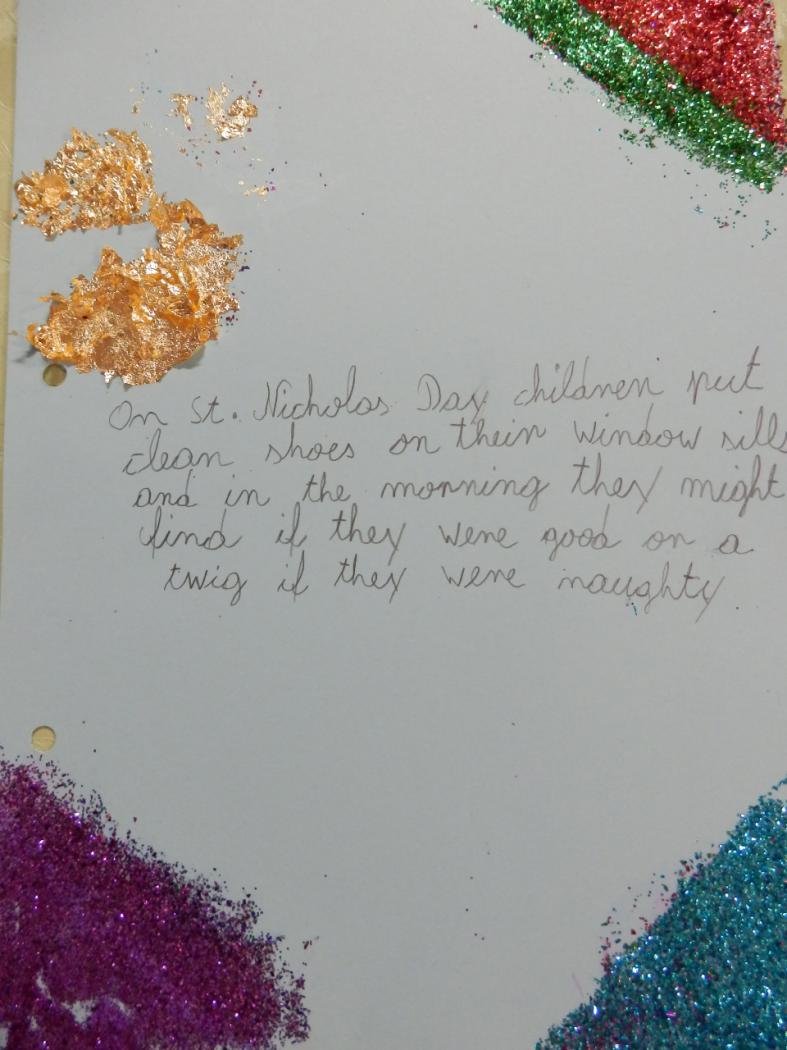 On St. Nicholas Day children put
clean shoes on their window sills
and in the morning they might
find if they were good or a
twig if they were naughty